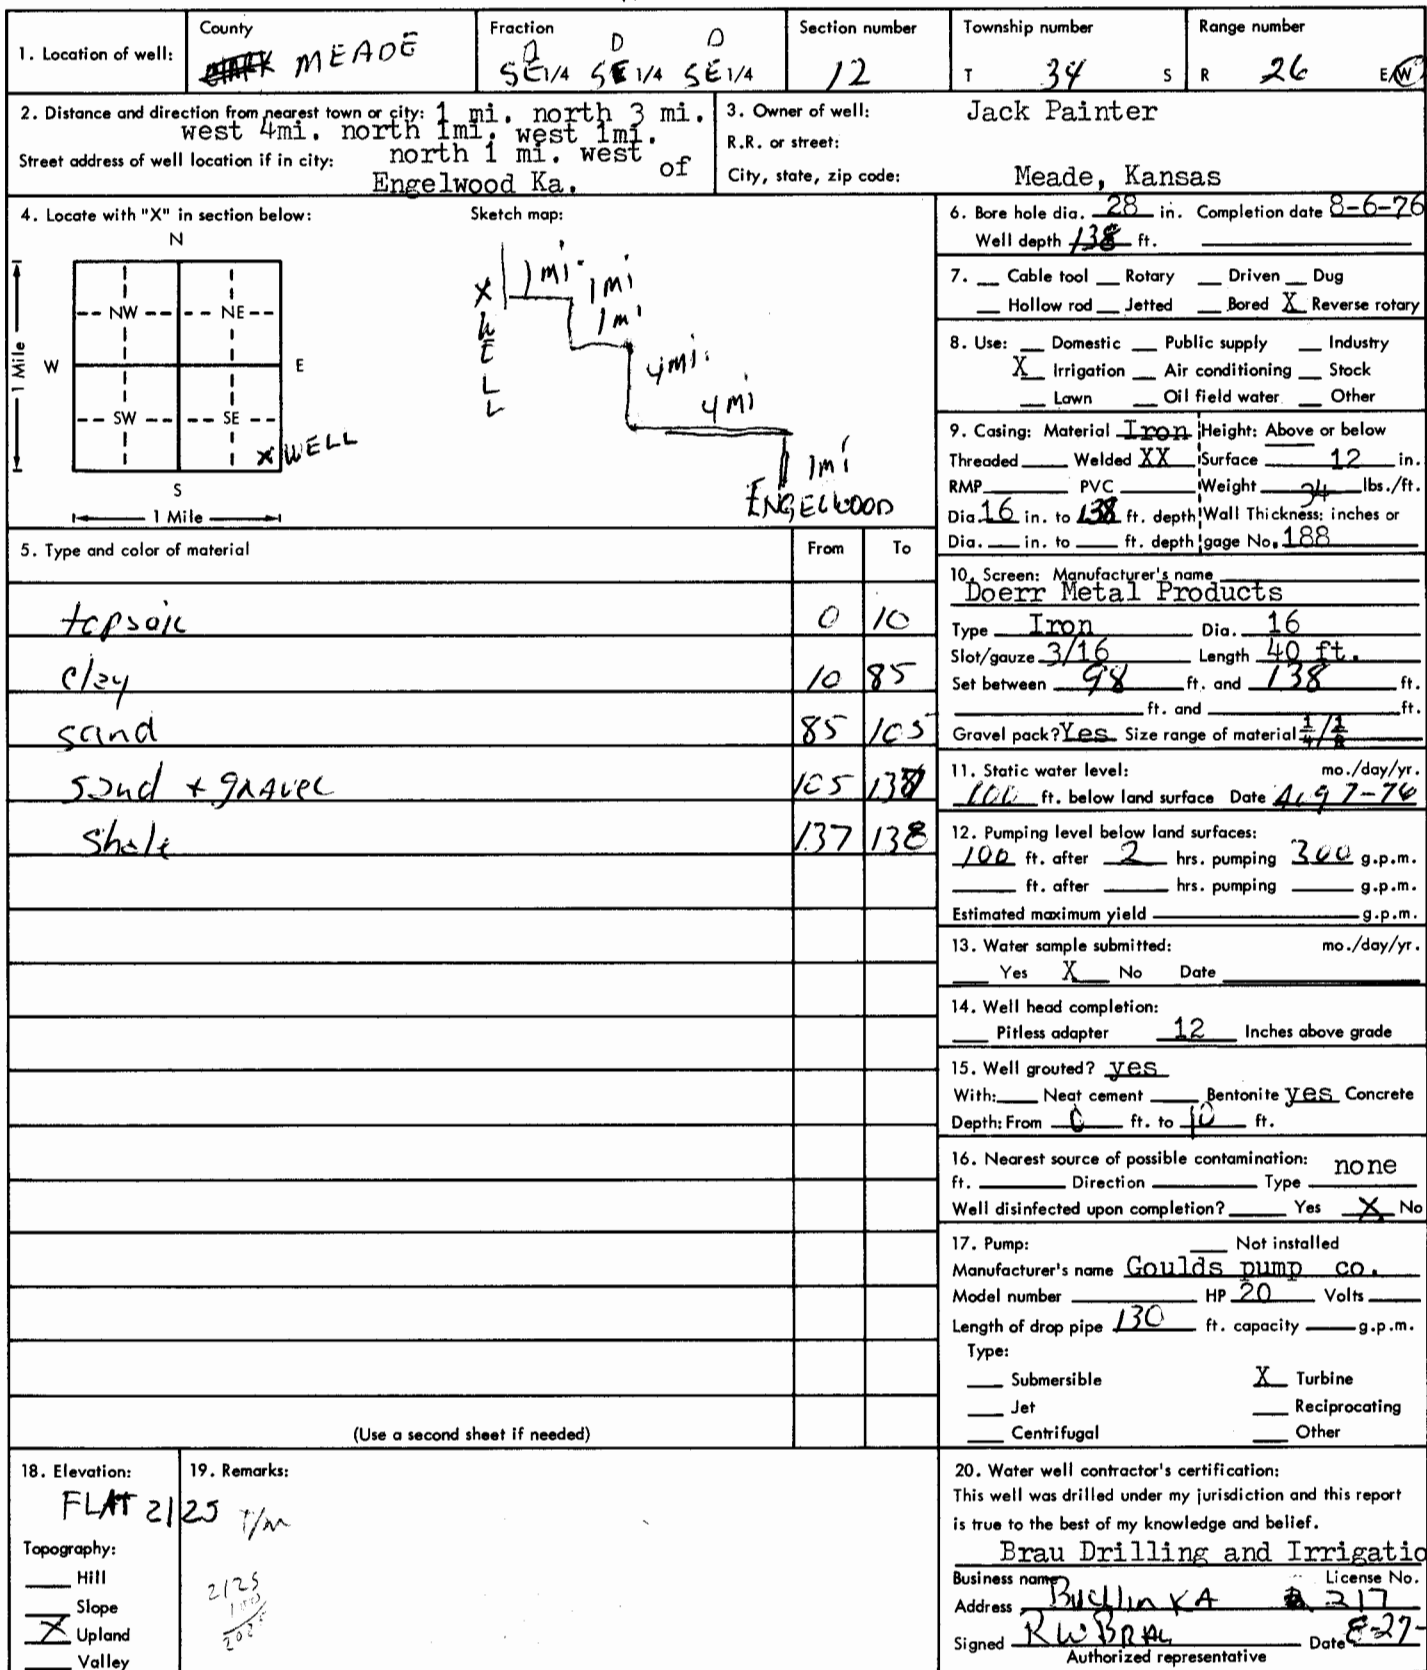 1. Location of well:
County
MEADE
Fraction
D D D
SE 1/4 SE 1/4 SE 1/4
Section number
12
Township number
T 34 S
Range number
R 26 E/W
2. Distance and direction from nearest town or city: 1 mi. north 3 mi.
west 4mi. north 1mi. west 1mi.
Street address of well location if in city: north 1 mi. west of
Engelwood Ka.
3. Owner of well: Jack Painter
R.R. or street:
City, state, zip code: Meade, Kansas
4. Locate with "X" in section below:
N
NW NE
W E
1 Mile
SW SE
X WELL
S
1 Mile
Sketch map:
X WELL
1 mi.
1 mi
1 mi
4 mi.
4 mi
1 mi
ENGELWOOD
5. Type and color of material From To
topsoil 0 10
clay 10 85
sand 85 105
sand + gravel 105 137
Shale 137 138
(Use a second sheet if needed)
6. Bore hole dia. 28 in. Completion date 8-6-76
Well depth 138 ft.
7. Cable tool Rotary Driven Dug
Hollow rod Jetted Bored X Reverse rotary
8. Use: Domestic Public supply Industry
X Irrigation Air conditioning Stock
Lawn Oil field water Other
9. Casing: Material Iron Height: Above or below
Threaded Welded XX Surface 12 in.
RMP PVC Weight 34 lbs./ft.
Dia. 16 in. to 138 ft. depth Wall Thickness: inches or
Dia. in. to ft. depth gage No. 188
10. Screen: Manufacturer's name
Doerr Metal Products
Type Iron Dia. 16
Slot/gauze 3/16 Length 40 ft.
Set between 98 ft. and 138 ft.
ft. and ft.
Gravel pack? Yes Size range of material
11. Static water level: mo./day/yr.
100 ft. below land surface Date Aug 7-76
12. Pumping level below land surfaces:
100 ft. after 2 hrs. pumping 300 g.p.m.
ft. after hrs. pumping g.p.m.
Estimated maximum yield g.p.m.
13. Water sample submitted: mo./day/yr.
Yes X No Date
14. Well head completion:
Pitless adapter 12 Inches above grade
15. Well grouted? yes
With: Neat cement Bentonite yes Concrete
Depth: From 0 ft. to 10 ft.
16. Nearest source of possible contamination: none
ft. Direction Type
Well disinfected upon completion? Yes X No
17. Pump: Not installed
Manufacturer's name Goulds pump co.
Model number HP 20 Volts
Length of drop pipe 130 ft. capacity g.p.m.
Type:
Submersible X Turbine
Jet Reciprocating
Centrifugal Other
18. Elevation:
FLAT 2125 T/M
Topography:
Hill
Slope
X Upland
Valley
19. Remarks:
2125
100
2025
20. Water well contractor's certification:
This well was drilled under my jurisdiction and this report
is true to the best of my knowledge and belief.
Brau Drilling and Irrigatio
Business name License No.
Address Bucklin KA 217
Signed R W BRAU Date 8-27-
Authorized representative